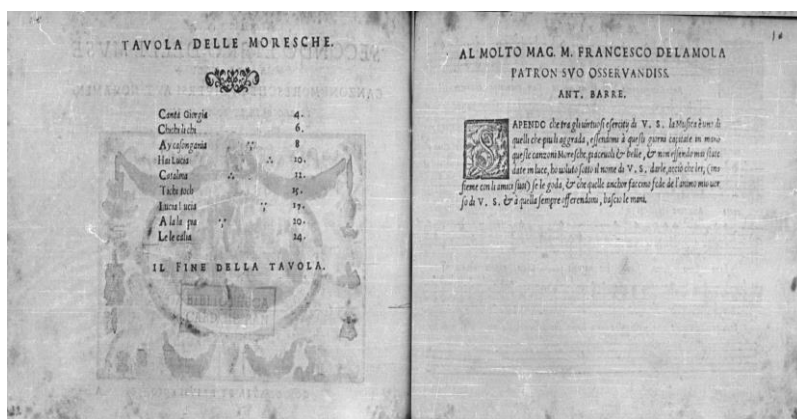 TAVOLA DELLE MORESCHE.
Canta Giorgia 4.
Chichilichi 6.
Aycasongania 8
Hai Lucia 10.
Catalina 12.
Tichi toch 15.
Lucia Lucia 17.
A la la pia 20.
Le le calia 24.
IL FINE DELLA TAVOLA.
AL MOLTO MAG. M. FRANCESCO DELAMOLA
PATRON SVO OSSERVANDISS.
ANT. BARRE.
SAPENDO che tra gli virtuosi esercitij di V. S. la Musica è uno di
quelli che piu li aggrada, essendomi à questi giorni capitate in mano
queste canzoni Moresche piaceuoli & belle, & non essendo mai state
date in luce, ho uoluto sotto il nome di V. S. darle, acciò che lei, (insieme
con li amici suoi) se le goda, & che quelle anchor faccino fede de l'animo mio uerso
di V. S. & à quella sempre offerendomi, bascio le mani.